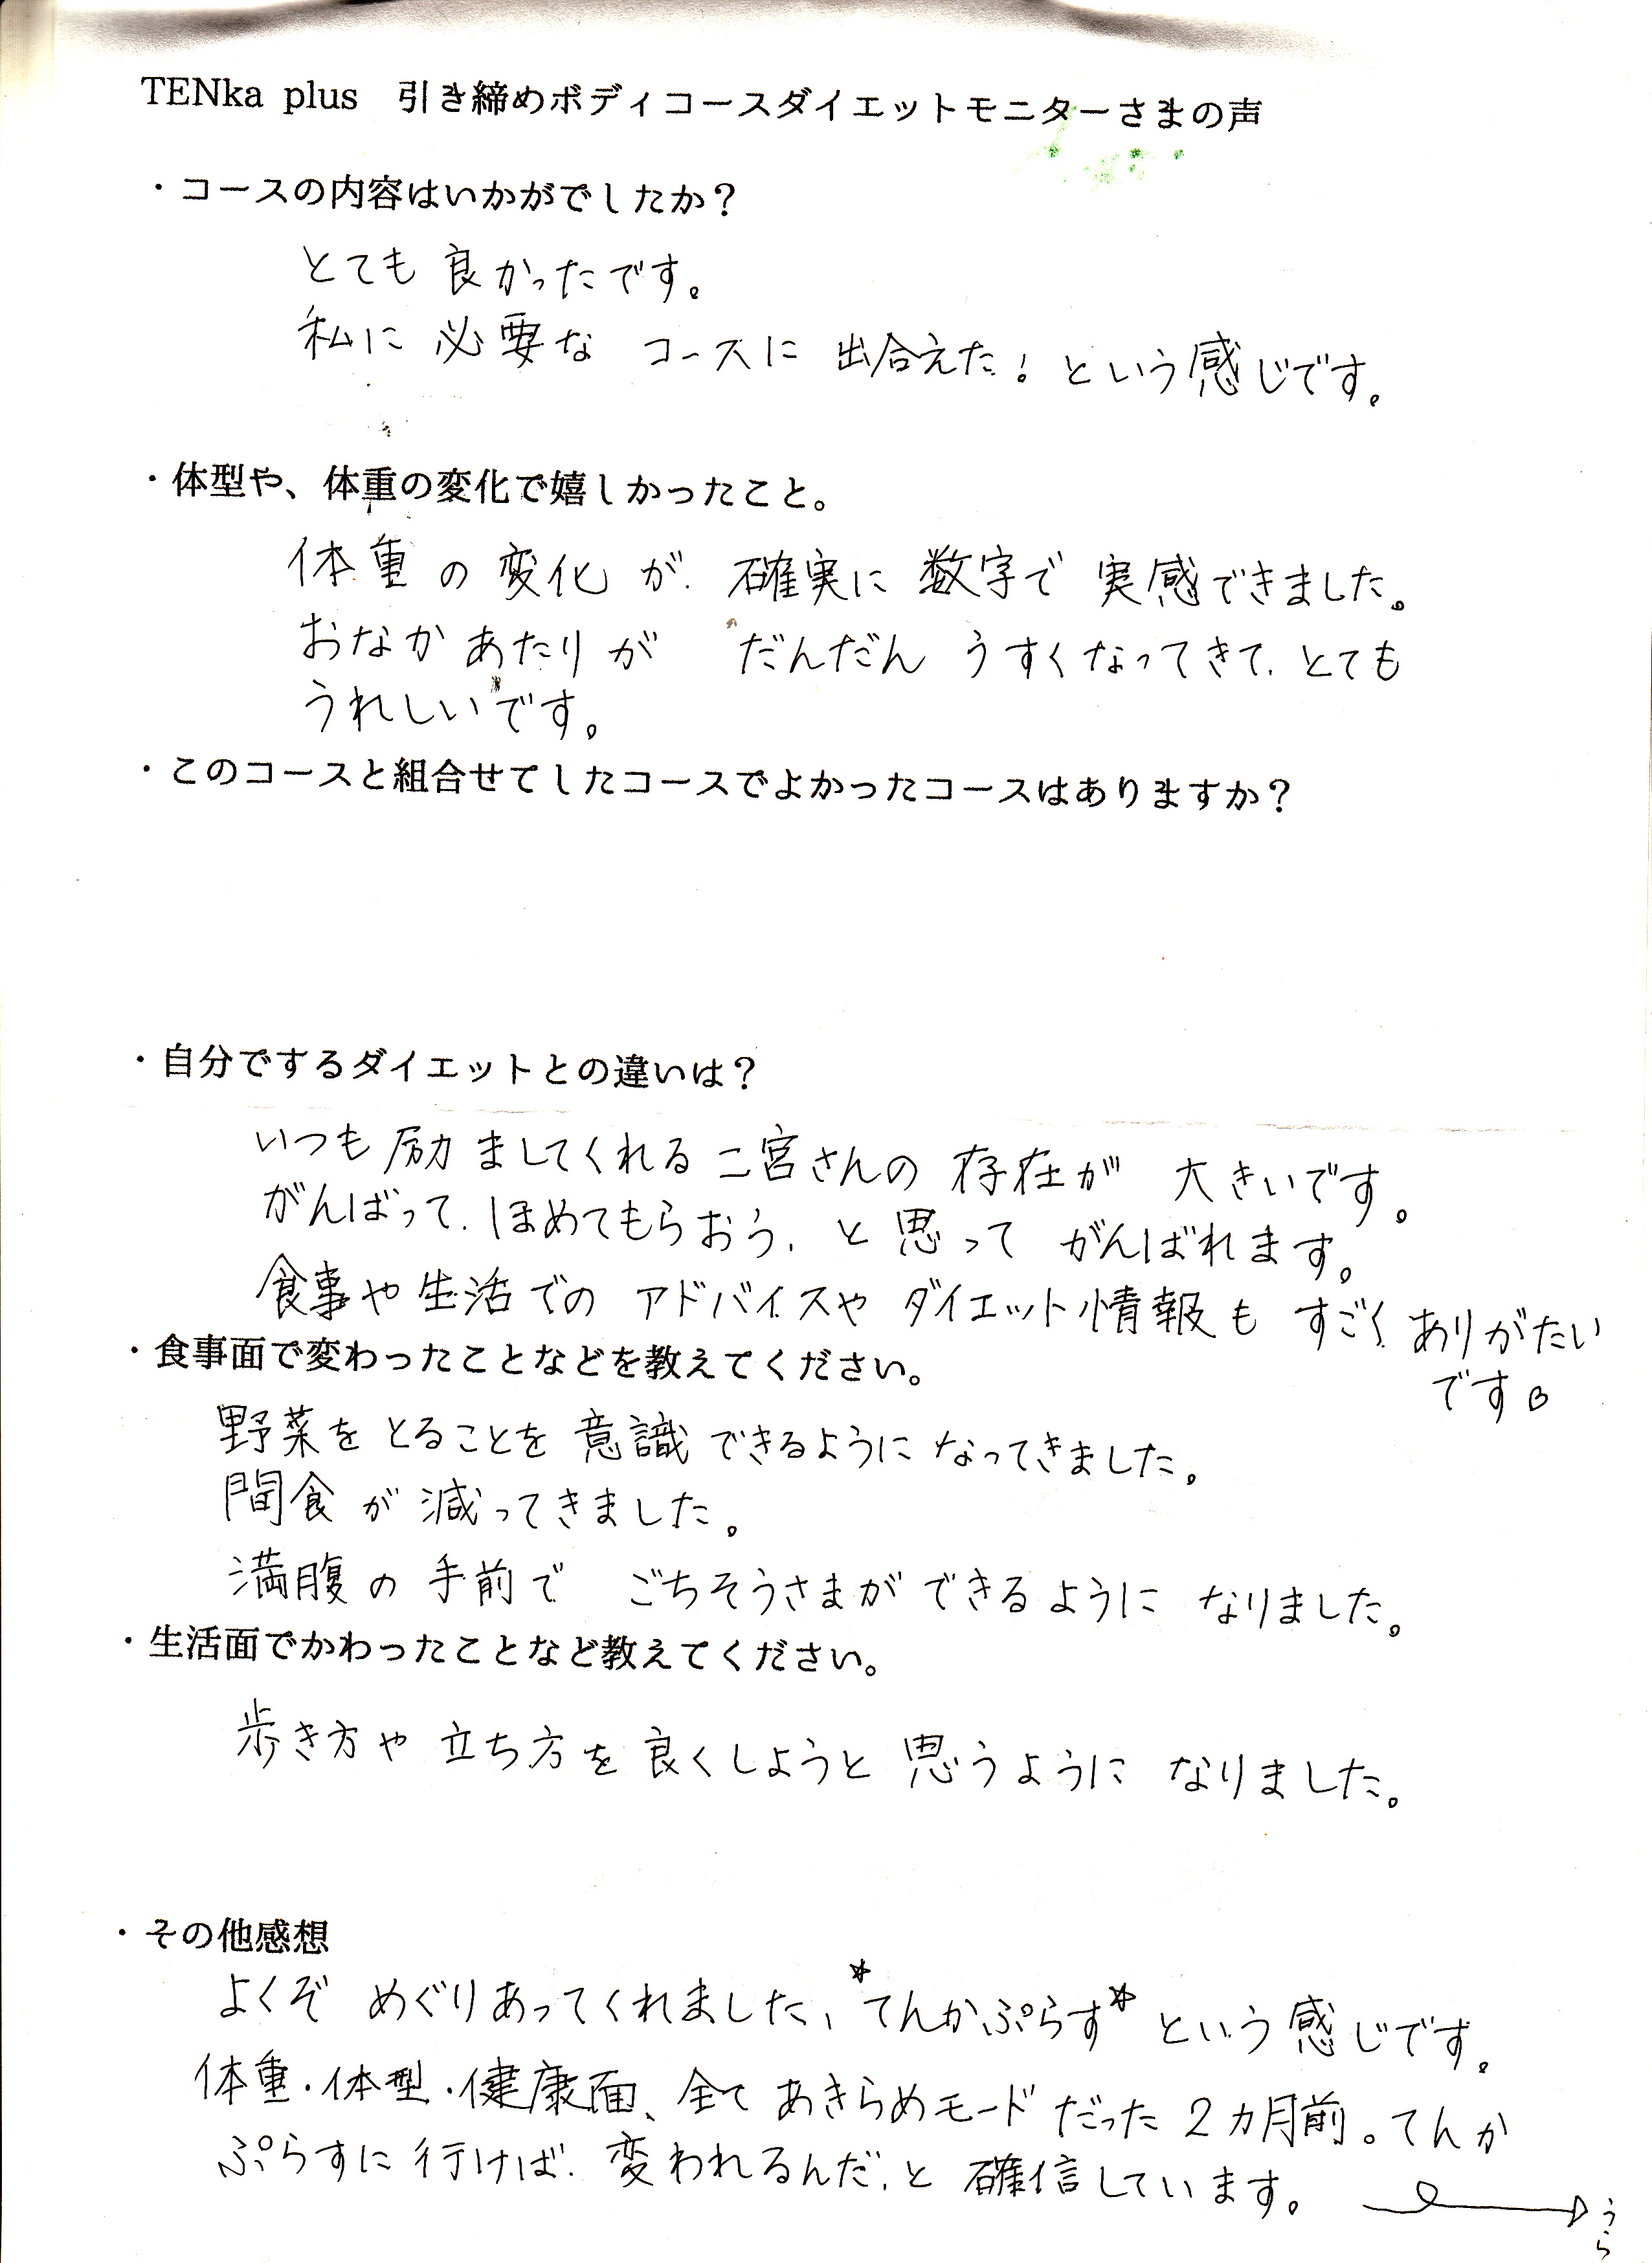 TENka plus 引き締めボディコースダイエットモニターさまの声
・コースの内容はいかがでしたか？
とても 良かったです。
私に 必要な コースに 出合えた！という感じです。
・体型や、体重の変化で嬉しかったこと。
体重の変化が、確実に数字で実感できました。
おなかあたりが だんだん うすくなってきて、とても
うれしいです。
・このコースと組合せてしたコースでよかったコースはありますか？
・自分でするダイエットとの違いは？
いつも励ましてくれる二宮さんの存在が 大きいです。
がんばって、ほめてもらおう、と思って がんばれます。
食事や生活での アドバイスや ダイエット情報も すごく ありがたい
です
・食事面で変わったことなどを教えてください。
野菜を とることを 意識できるように なってきました。
間食が 減ってきました。
満腹の 手前で ごちそうさまが できるように なりました。
・生活面でかわったことなど教えてください。
歩き方や 立ち方を 良くしようと 思うように なりました。
・その他感想
よくぞ めぐりあってくれました、*てんかぷらす* という感じです。
体重・体型・健康面、全て あきらめモードだった 2カ月前。てんか
ぷらすに 行けば、変われるんだ、と 確信しています。
うら